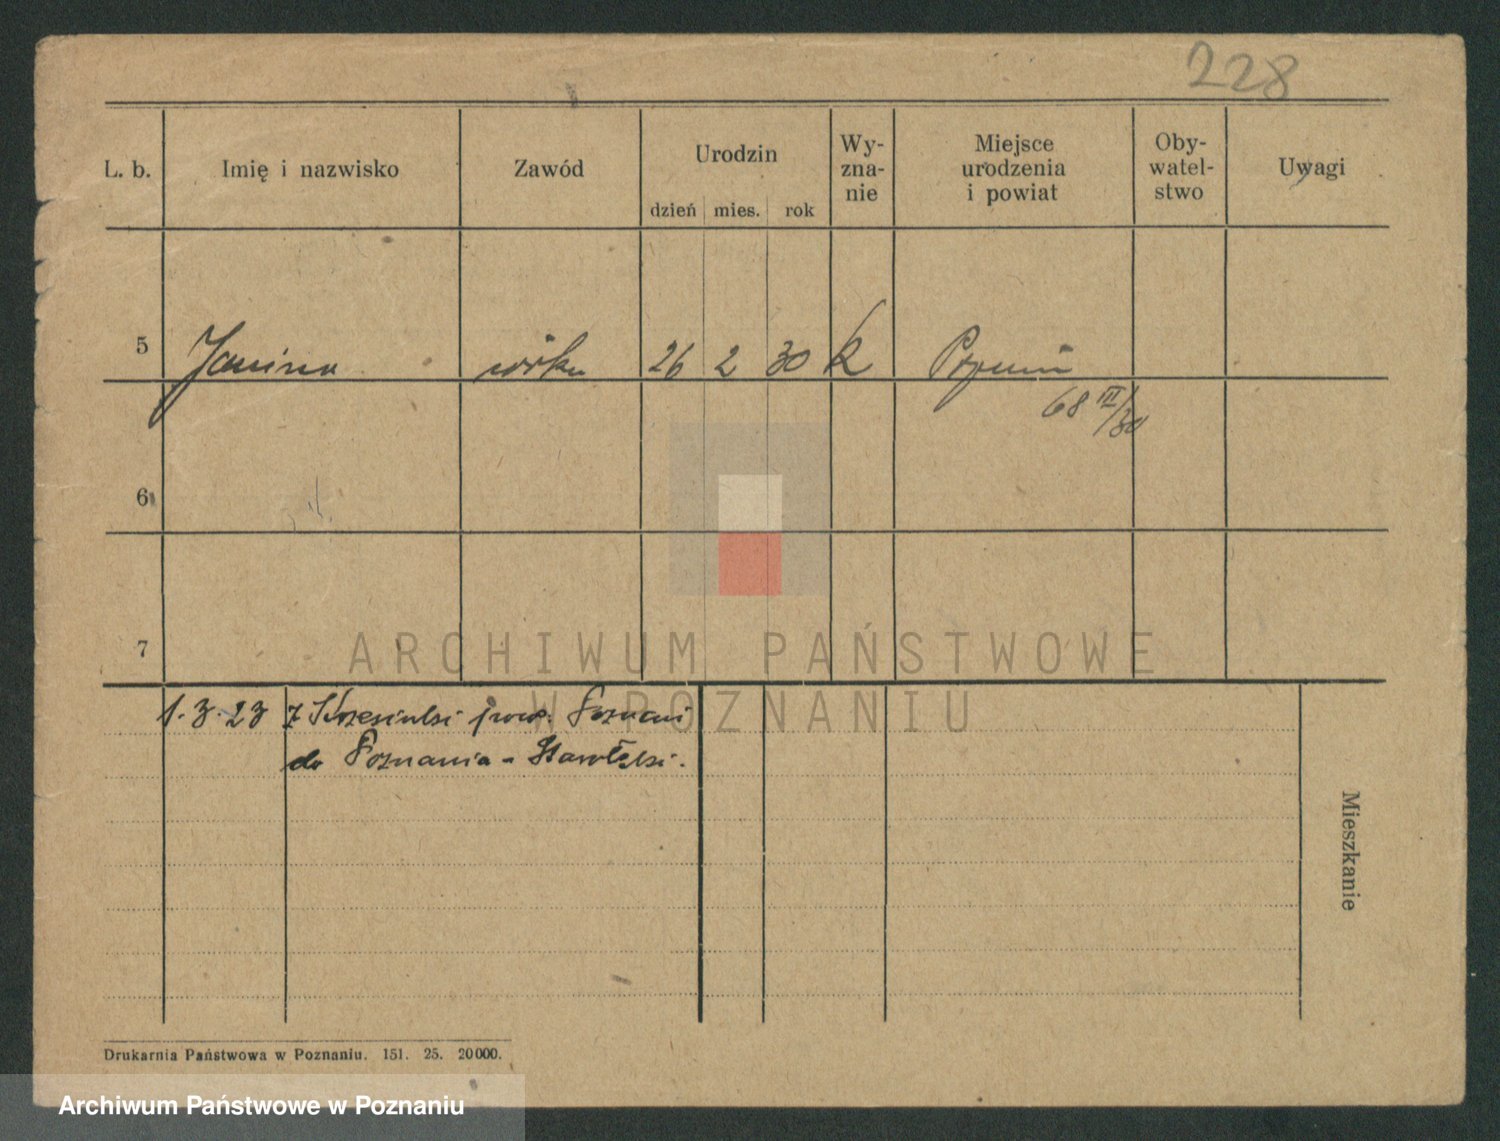 228
L. b. Imię i nazwisko Zawód Urodzin dzień mies. rok Wy-
zna-
nie Miejsce
urodzenia
i powiat Oby-
watel-
stwo Uwagi
5 Janina córka 26 2 30 k Poznań
68 III/30
6
7
1.3.23 z Krzesin pow. Poznań
do Poznania - Starołęki.
Mieszkanie
Drukarnia Państwowa w Poznaniu. 151. 25. 20000.
ARCHIWUM PAŃSTWOWE
W POZNANIU
Archiwum Państwowe w Poznaniu